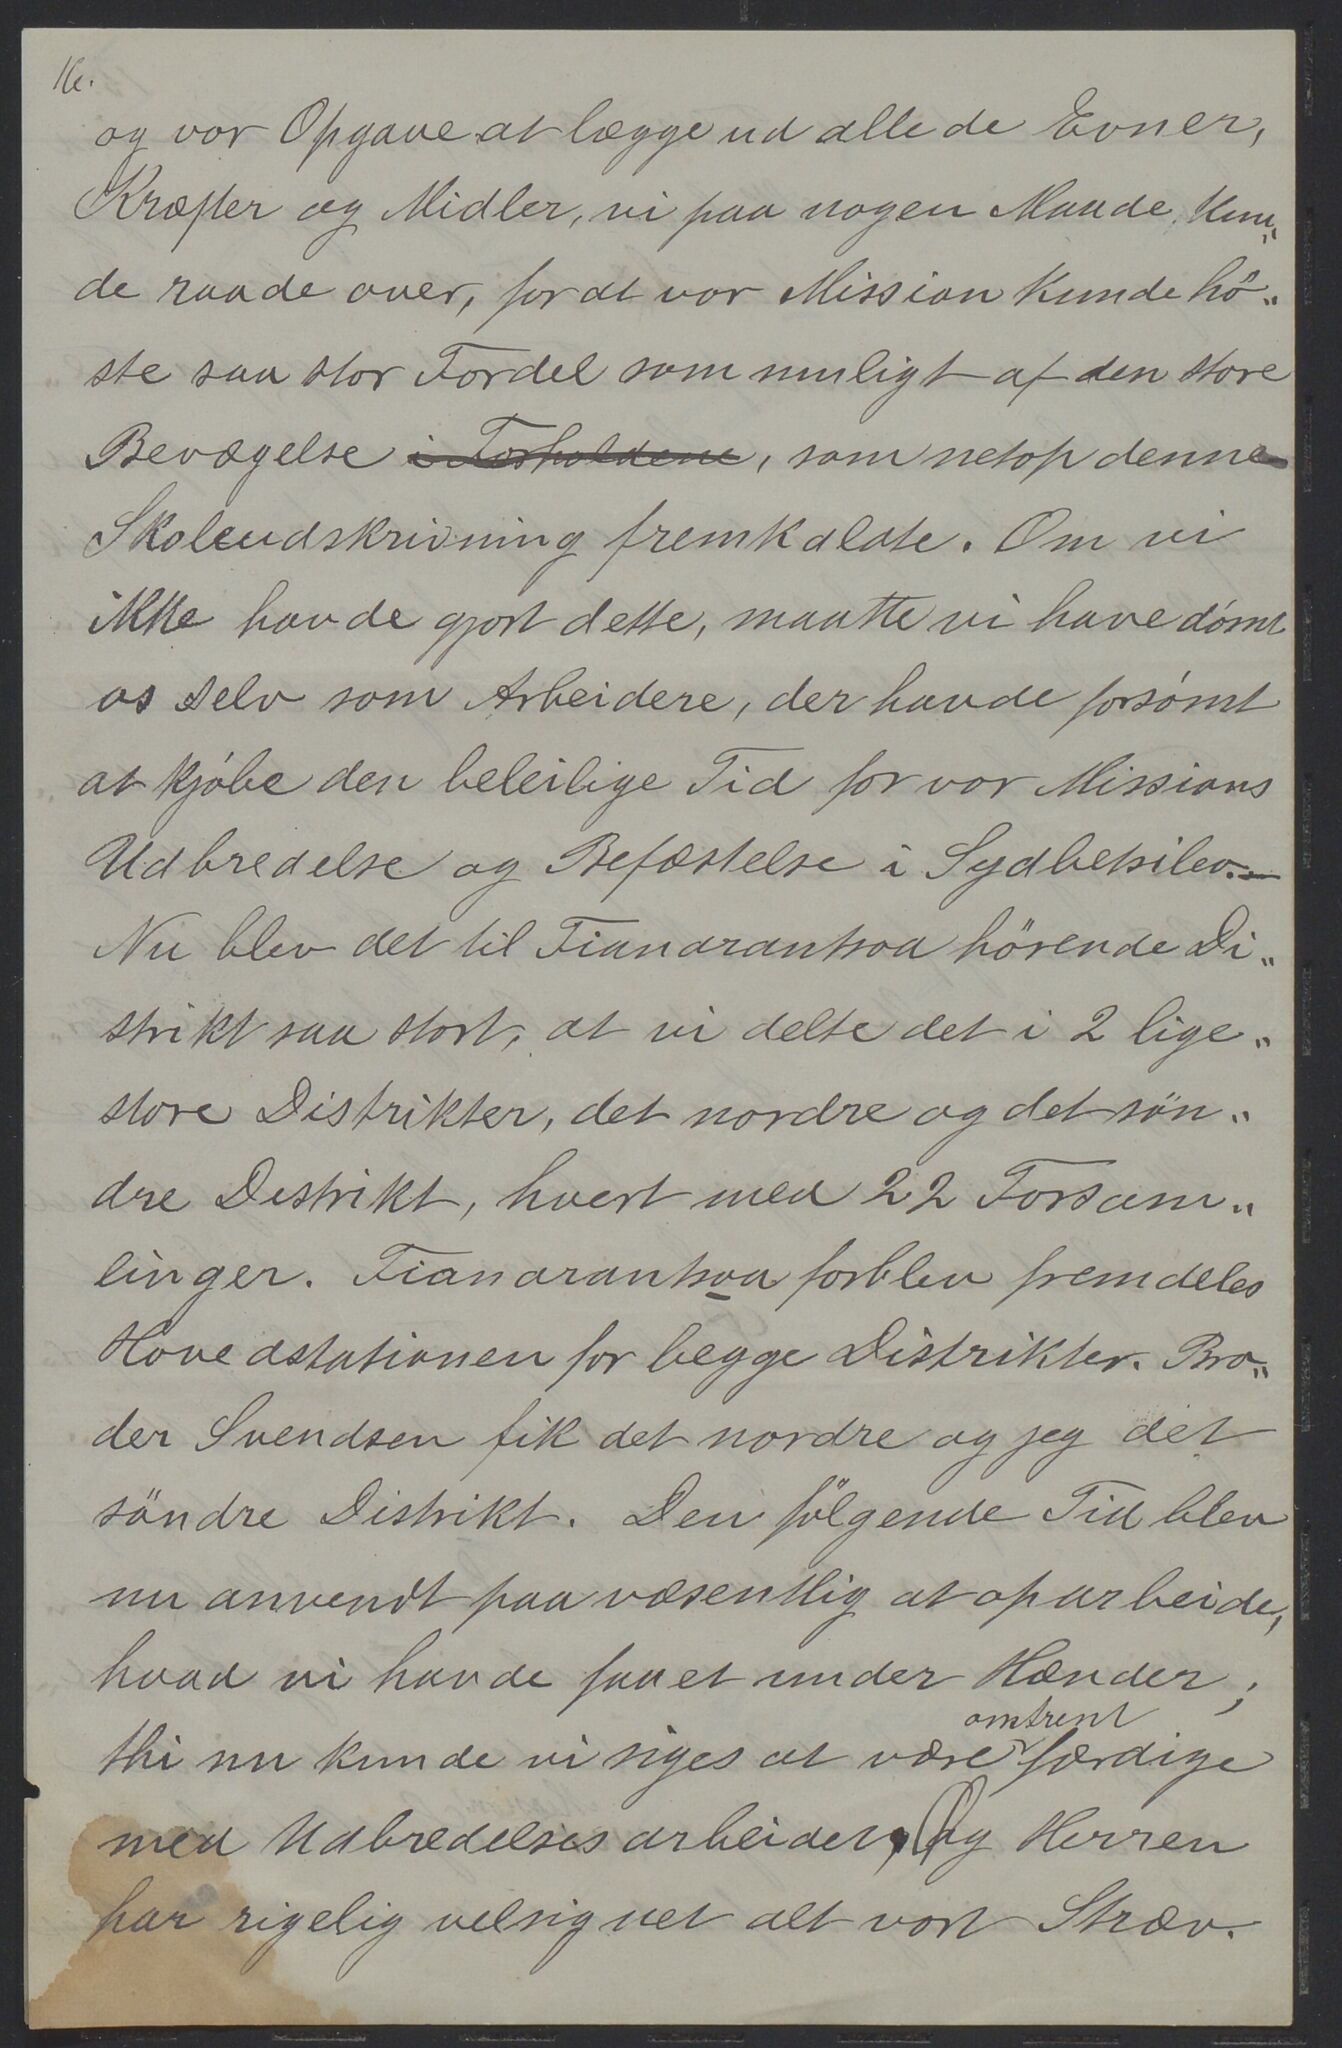 16.
og vor Opgave at lægge ud alle de Evner,
Kræfter og Midler, vi paa nogen Maade kun„
de raade over, for at vor Mission kunde hö„
ste saa stor Fordel som muligt af den store
Bevægelse i Forholdene, som netop denne
Skoleudskrivning fremkaldte. Om vi
ikke havde gjort dette, maatte vi have dómt
os selv som Arbeidere, der havde forsómt
at kjóbe den beleilige Tid for vor Missions
Udbredelse og Befæstelse i Sydbetsileo.—
Nu blev det til Fianarantsoa hörende Di„
strikt saa stort, at vi delte det i 2 lige„
store Distrikter, det nordre og det sön„
dre Distrikt, hvert med 22 Forsam„
linger. Fianarantsoa forblev fremdeles
Hovedstationen for begge Distrikter. Bro„
der Svendsen fik det nordre og jeg det
söndre Distrikt. Den fölgende Tid blev
nu anvendt paa væsentlig at oparbeide,
hvad vi havde faaet under Hænder;
omtrent
thi nu kunde vi siges at være færdige
med Udbredelsesarbeidet, Og Herren
har rigelig velsignet alt vort Stræv.